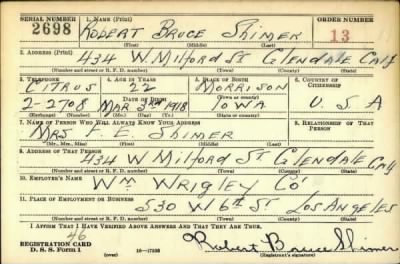 SERIAL NUMBER 1. NAME (Print) ORDER NUMBER
2698 ROBERT BRUCE SHIMER 13
(First) (Middle) (Last)
2. ADDRESS (Print)
434 W. MILFORD ST GLENDALE CALIF
(Number and street or R. F. D. number) (Town) (County) (State)
3. TELEPHONE 4. AGE IN YEARS 5. PLACE OF BIRTH 6. COUNTRY OF CITIZENSHIP
CITRUS 22 MORRISON
DATE OF BIRTH (Town or county)
2-2708 MAR 3RD 1918 IOWA U.S.A
(Exchange) (Number) (Mo.) (Day) (Yr.) (State or country)
7. NAME OF PERSON WHO WILL ALWAYS KNOW YOUR ADDRESS 8. RELATIONSHIP OF THAT PERSON
MRS F. E. SHIMER
(Mr., Mrs., Miss) (First) (Middle) (Last)
9. ADDRESS OF THAT PERSON
434 W MILFORD ST GLENDALE CAL
(Number and street or R. F. D. number) (Town) (County) (State)
10. EMPLOYER'S NAME
WM WRIGLEY CO
11. PLACE OF EMPLOYMENT OR BUSINESS
530 W 6th ST LOS ANGELES
(Number and street or R. F. D. number) (Town) (County) (State)
I AFFIRM THAT I HAVE VERIFIED ABOVE ANSWERS AND THAT THEY ARE TRUE.
46
REGISTRATION CARD
D. S. S. Form 1 16—17105 Robert Bruce Shimer
(over) (Registrant's signature)